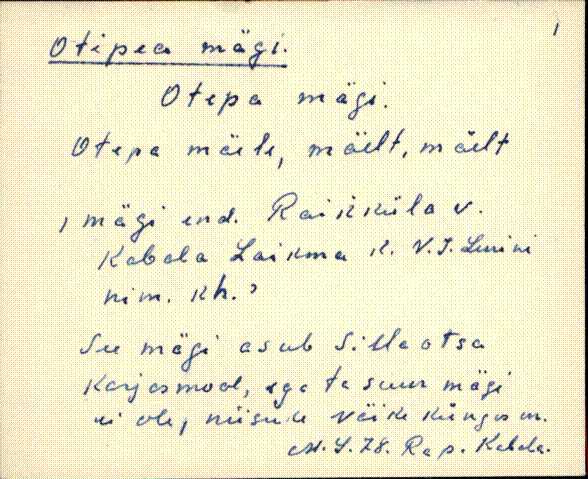 1
Otipea mägi.
Otepa mägi.
Otepa mäele, mäelt, mäelt
, mägi end. Raikküla v.
Kabala Laikma k. V.I. Lenini
nim. kh.?
See mägi asub Sillaotsa
Karjasmaal, ega ta suur mägi
ei ole, niisuke väike küngas on.
S. 78. Rap. Kabala.